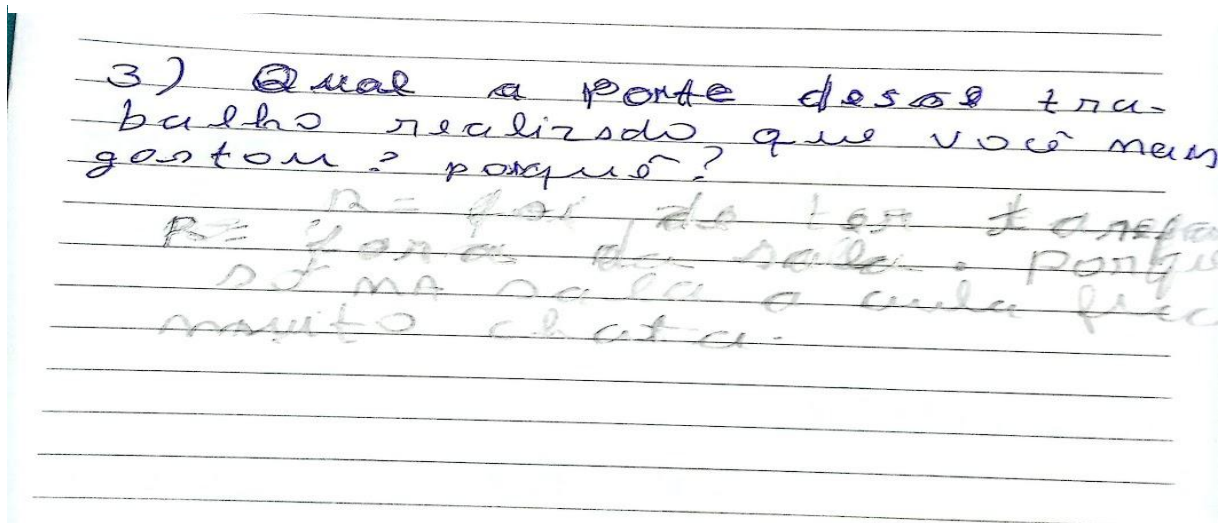 3) Qual a parte desse tra-
balho realizado que você mais
gostou? porquê?
R= foi de ter tarefa
R= fora da sala. Porque
só na sala a aula fica
muito chata.